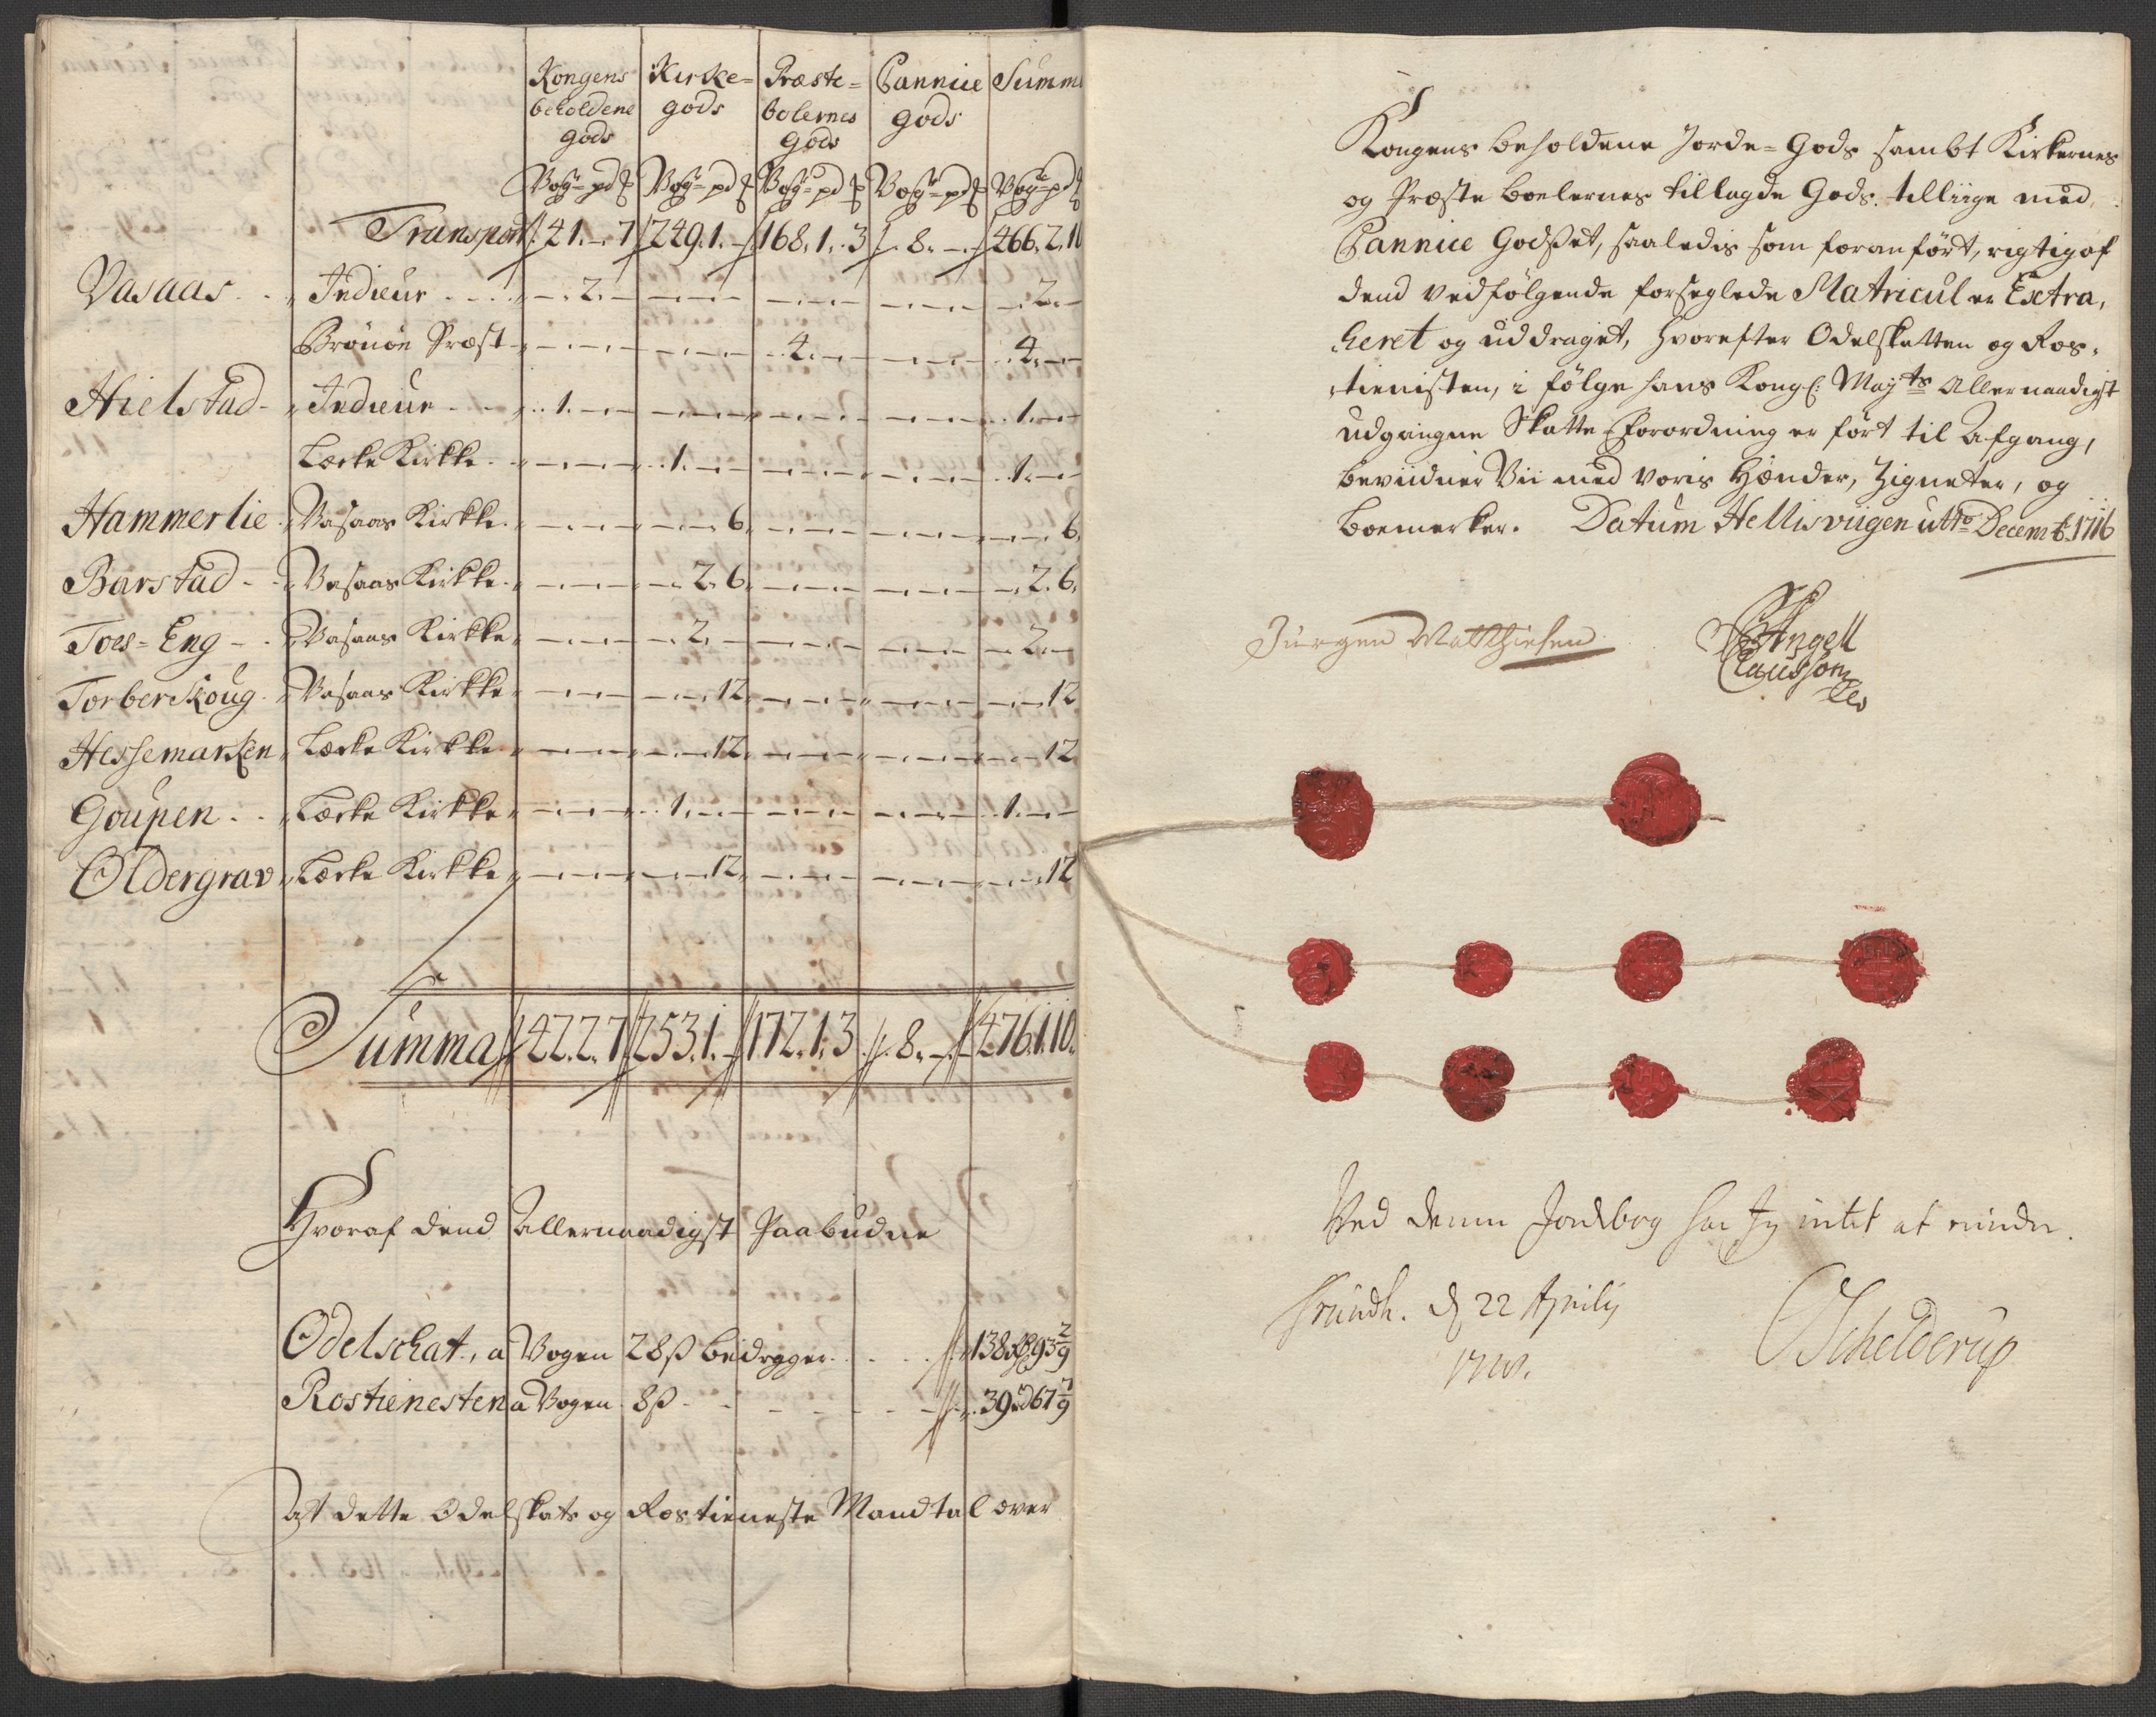 Kongens beholdene gods | Kirke= gods | Præste= bolernes Gods | Cannice gods | Summa
Vog- pd | Vog- pd | Vog- pd | Vog- pd | Vog- pd
Transport 41.-.7 | 249.1.- | 168.1.3 | 8.-.- | 466.2.10
Vasaas - Indieur - 2.- | 2.-
Brönöe Præst - 4.- | 4.-
Hielstad - Indieur - 1.- | 1.-
Lecke Kirkke - 1.- | 1.-
Hammerlie - Vasaas Kirkke - 6 | 6
Barstad - Vasaas Kirkke - 2.6 | 2.6
Toes=Eng - Vasaas Kirkke - 2.- | 2.-
Torberskoug - Vasaas Kirkke - 12 | 12
Hessemarken - Lecke Kirkke - 12 | 12
Goupen - Lecke Kirkke - 1.- | 1.-
Oldergrav - Lecke Kirkke - 12 | 12
Summa 42.2.7 | 253.1.- | 172.1.3 | 8.-.- | 476.1.10
Hvoraf dend Allernaadigst Paabudne
Odelschat, a Vogen 28ß bedrager 138 rd 93 2/9
Rostienesten a Vogen 8ß - 39 rd 67 7/9
At dette Odelskats og Rostieneste Mandtal over
Kongens beholdene Jorde=Gods sambt Kirkernes
og Præste boelernes tillagde Gods. tilliige med
Cannice Godset, saaledis som foranført, rigtig af
dend vedfölgende forseglede Matricul er Extra,
heret og uddraget, hvorefter Odelskatten og Ros,
tienisten, i fölge hans Kongl: Mayts Allernaadigst
udgangne Skatte Forordning er fört til Afgang,
bevidner Vii med voris Hænder, Zigneter, og
boemerker. Datum Hellisviigen utto Decemb: 1716
Jürgen Matthiesen
Angell
Claussøn
Ved denne Jordebog har Jeg intet at erindre.
Trundh. d 22 Aprily
Schelderup